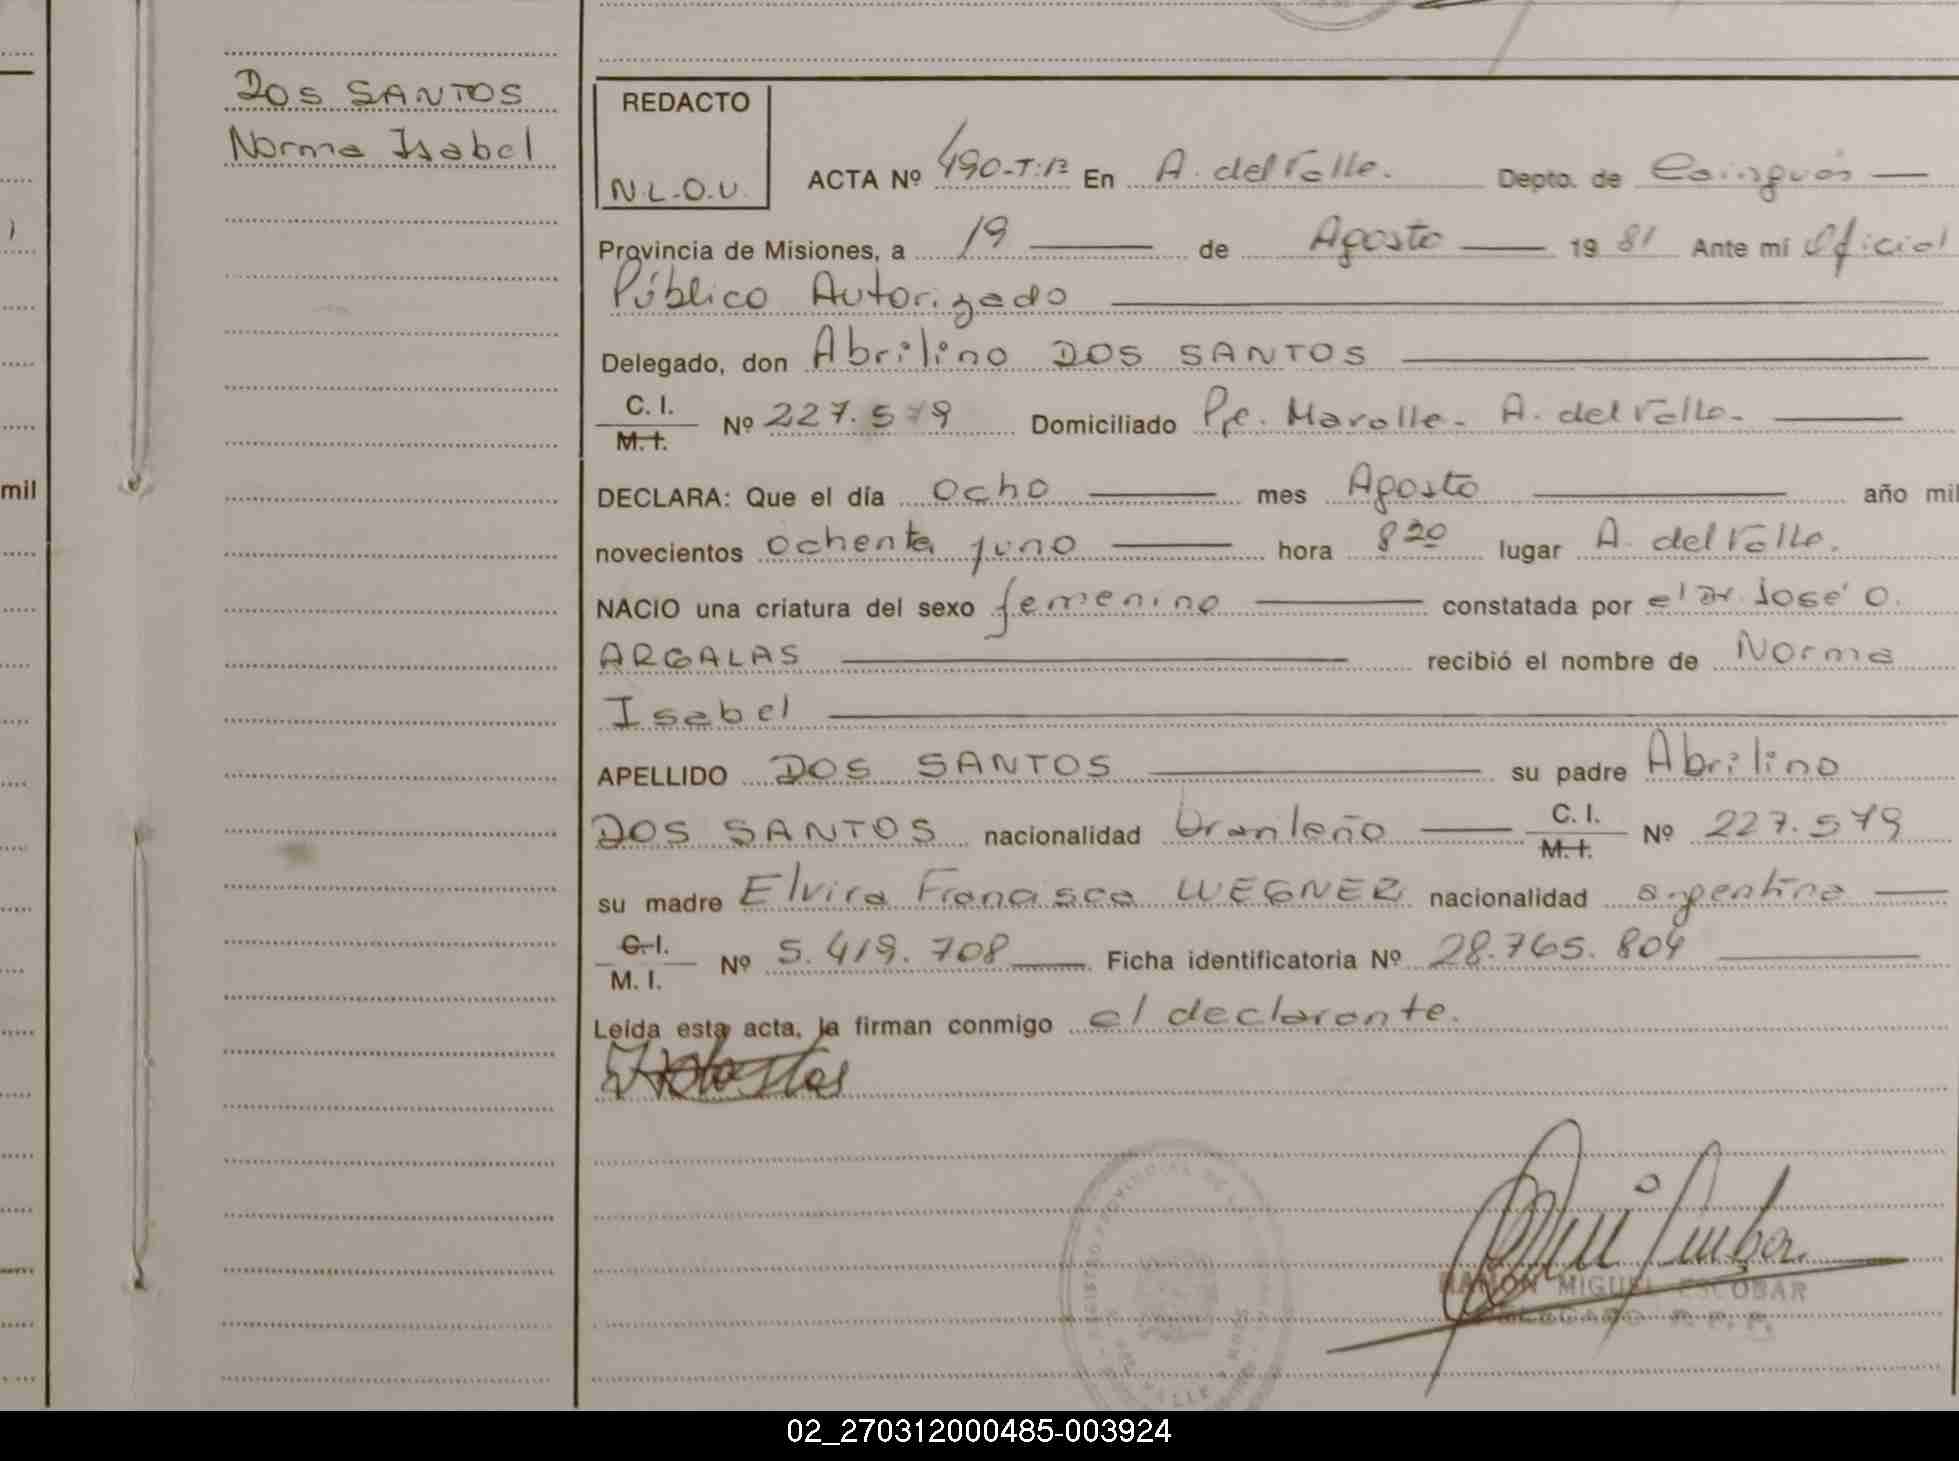 DOS SANTOS
Norma Isabel
REDACTO
N.L.O.V.
ACTA Nº 490-T:R En A. del Valle. Depto. de Cainguás
Provincia de Misiones, a 19 de Agosto 19 81 Ante mí Oficial
Público Autorizado
Delegado, don Abrilino DOS SANTOS
C. I.
M. I. Nº 227.579 Domiciliado Pje. Marolle. A. del Valle.
mil
DECLARA: Que el día ocho mes Agosto año mil
novecientos ochenta yuno hora 8 20 lugar A. del Valle.
NACIO una criatura del sexo femenino constatada por el Dr. José O.
ARGALAS recibió el nombre de Norma
Isabel
APELLIDO DOS SANTOS su padre Abrilino
DOS SANTOS nacionalidad brasileño C. I.
M. I. Nº 227.579
su madre Elvira Francisca WEGNER nacionalidad argentina
C. I.
M. I. Nº 5.419.708 Ficha identificatoria Nº 28.765.804
Leída esta acta, la firman conmigo el declarante.
RAMON MIGUEL ESCOBAR
DELEGADO R. P. P.
02_270312000485-003924